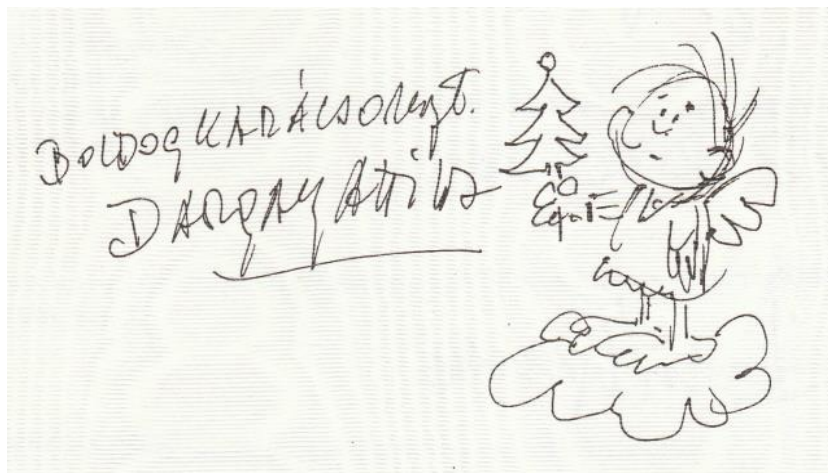 BOLDOG KARÁCSONYT.
DARGAY ATTILA